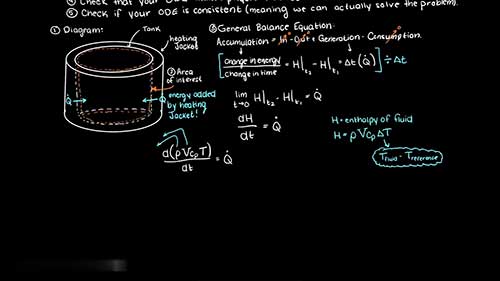 ④ Check if your ODE is consistent (meaning we can actually solve the problem).
① Diagram:
Tank
heating
Jacket
② Area
of interest
Q̇
Q̇
energy added
by heating
Jacket!
③ General Balance Equation:
Accumulation = In - Out + Generation - Consumption.
[change in energy / change in time = H|t₂ - H|t₁ = Δt(Q̇)] ÷ Δt
lim t→0 H|t₂ - H|t₁ = Q̇
dH/dt = Q̇
d(ρVcpT)/dt = Q̇
H = enthalpy of fluid
H = ρVcpΔT
Tfluid - Treference